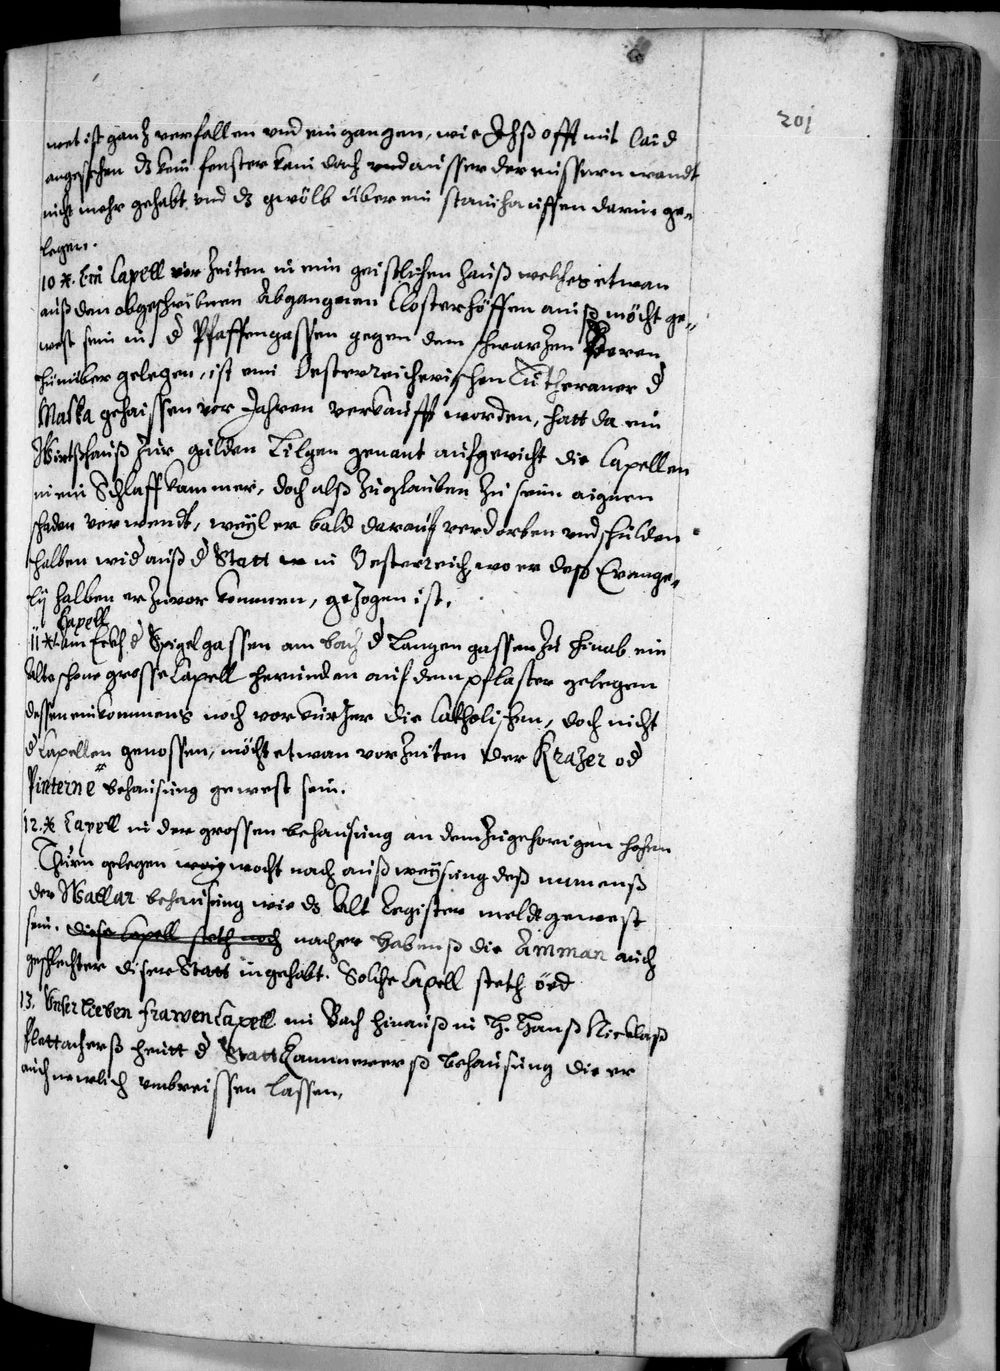 201
met ist gantz verfallen und eingangen, wie Ichß offt mit laid
angesehen dz kein fenster kein dach und ausser der eussern wandt
nicht mehr gehabt und dz gwölb über ein stainhauffen darin ge-
legen.
10 *. Ein Capell vor zeiten in eim geistlichen hauß welches etwan
auß den obgeschribnen Abgangenen Closterhöffen ainß möcht ge-
west sein in d Pfaffengassen gegen dem schwarzen Beeren
hinüber gelegen, ist eim Oesterreicherischen Lutheraner d
Maska gehaissen vor Jahren verkaufft worden, hatt da ein
Wirtßhauß zur gülden Lilgen genant aufgericht die Capellen
in ein Schlaffkammer, doch alß zuglauben zu seim aignen
schaden verwendt, weyl er bald darauf verdorben und schulden
halben wid auß d Statt in Oesterreich, wo er deß Evange-
lij halben er zuvor kommen, gezogen ist.
Capell
11 * am Eckh d Spigelgassen am bach d Langen gassen zu hinab ein
Alte schone grosse Capell herunden auf dem pflaster gelegen
dessen einkommens noch vor kurzer die Catholischen, doch nicht
d Capellen genossen, möcht etwan vor Zeiten der Krazer od
Pinterne behausung gewest sein.
12. * Capell in der grossen behausung an dem zugehorigen hohen
Thurn gelegen mocht nach außweysung deß nunenß
der Wallar behausung wie dz Alt Register meldt gewest
sein. diese Capell steth noch nacher habenß die Amman auch
geschlechter diser Statt ingehabt. Solche Capell steth öed
13. Unser lieben frawen Capell im Bach hinauß in H. Hanß Nicklaß
Flettacherß heutt d Statt Cammererß behausung die er
auch newlich umbreissen lassen.